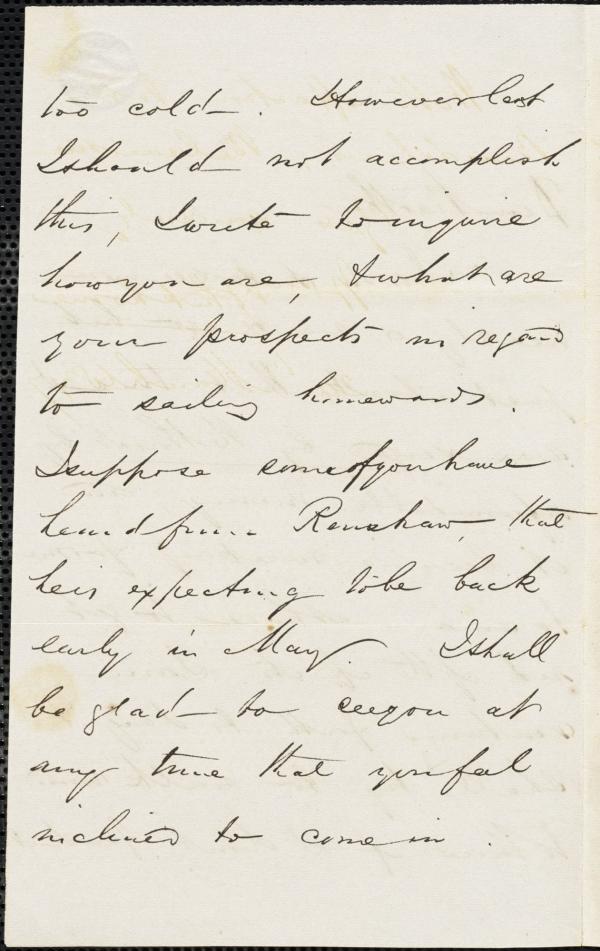 too cold. However lest
I should not accomplish
this, I write to inquire
how you are, & what are
your prospects in regard
to sailing homewards.
I suppose some of you have
heard from Renshaw, that
he is expecting to be back
early in May. I shall
be glad to see you at
any time that you feel
inclined to come in.